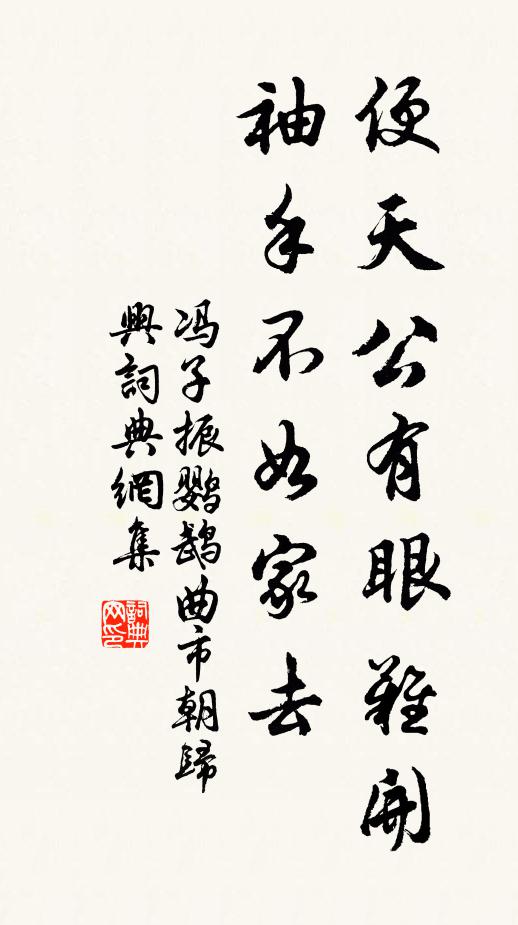 便天公有眼難開
袖手不如家去
冯子振鹦鹉曲市朝歸
興詞典網集
詞典网印